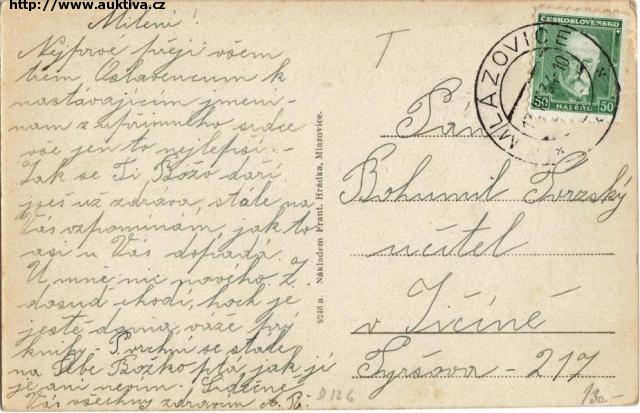 http://www.auktiva.cz
Milení!
Nejprvé přeji všem
třem Oslavencum k
nastávajícím jmeni-
nam z upřimného srdce
vše jen to nejlepší. -
Jak se Ti Božo daří
jseš už zdráva, stále na
Vás vzpomínám, jak to
asi u Vás dopadá.
U mně nic nového. Z.
dosud chodí, hoch je
ještě doma, váže prý
knihy. - P. vrchní se stále
na Tebe Božko ptá, jak jí
je ani nevím. Srdečně
Vás všechny zdravím A. R.
9246 a. Nákladem Frant. Hrádka, Mlazovice.
D 126
T
MLAZOVICE
ČESKOSLOVENSKO
50 HALÉŘŮ 50
Pán
Bohumil Tvrzský
učitel
v Jičíně
Tyršova - 217
130.-